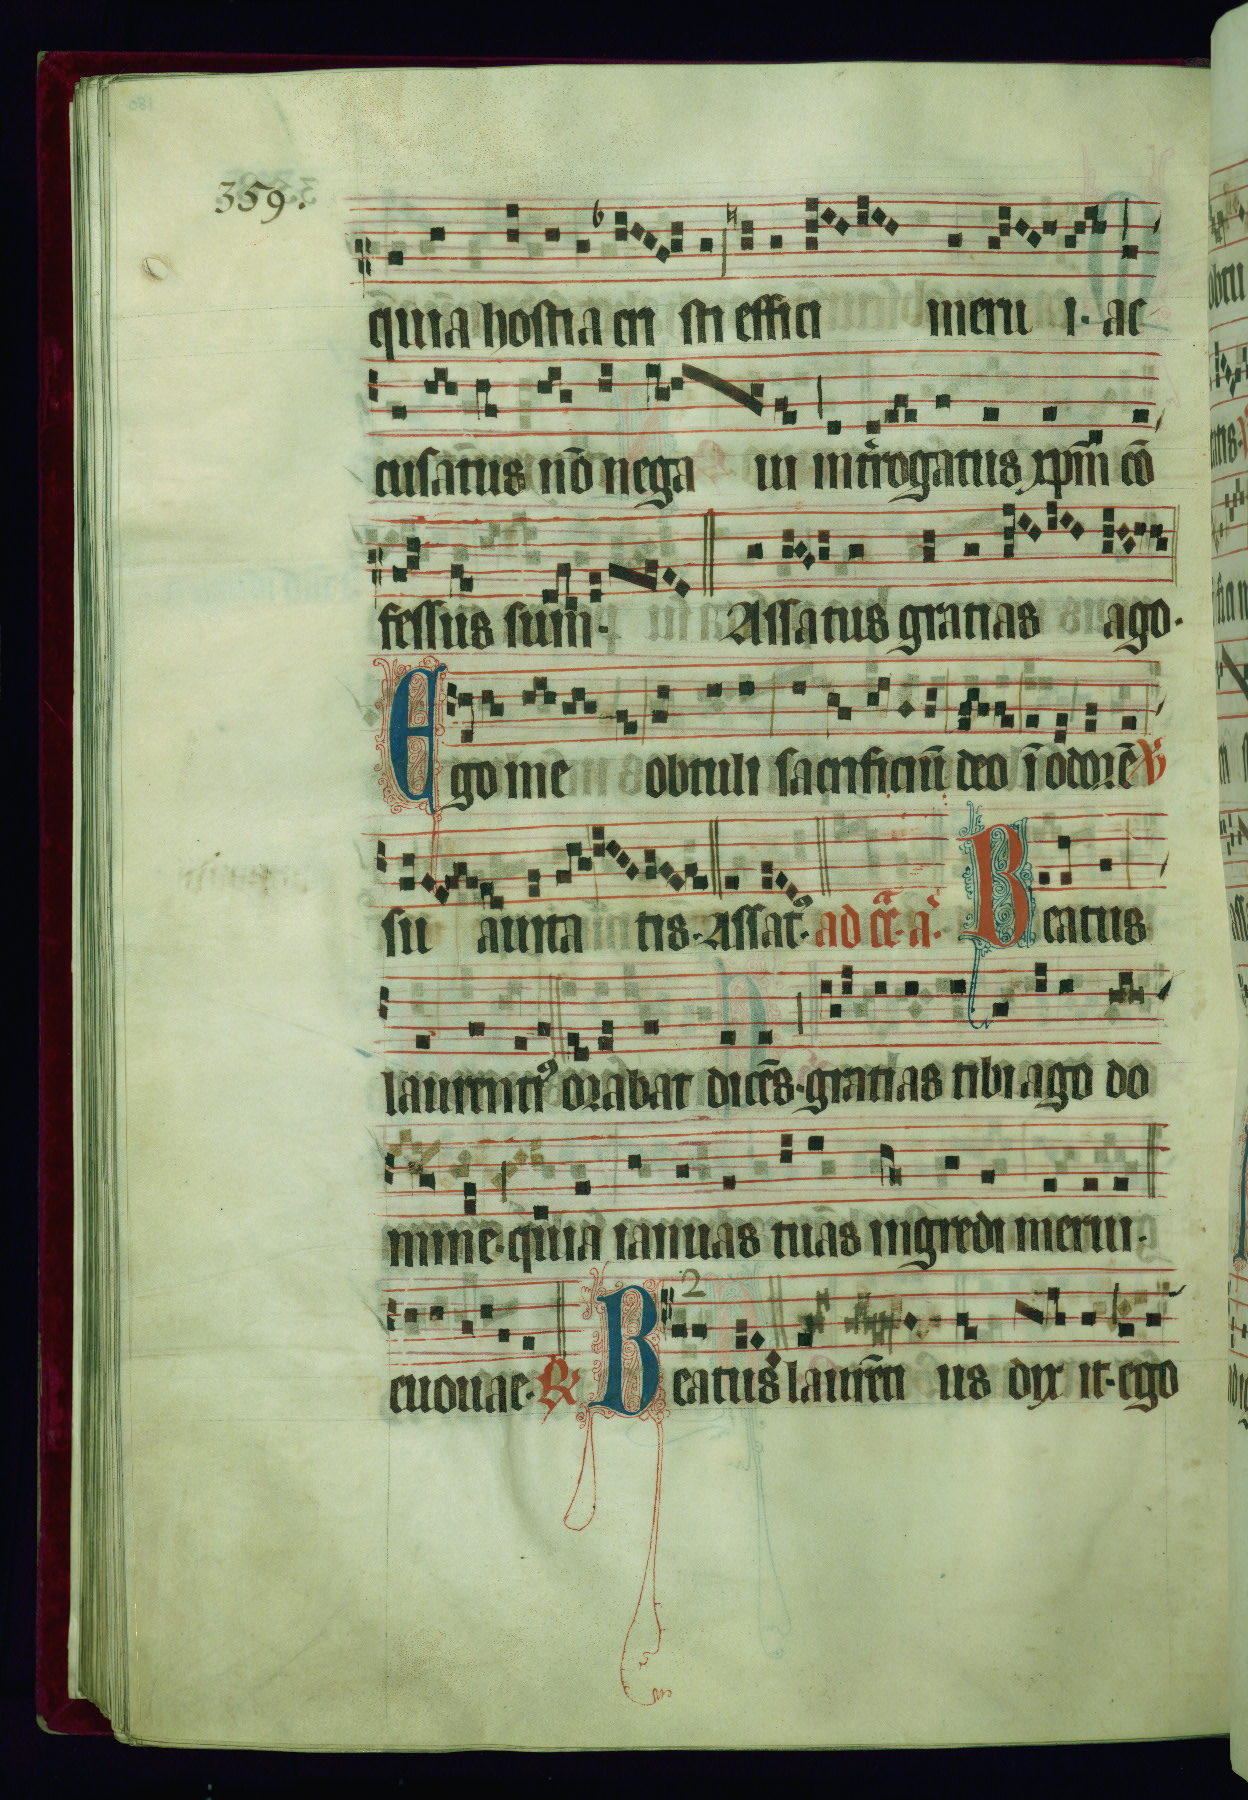 359.
quia hostia cri sti effici meru i. ac
cusat̄us nō nega ui intʳrogatus xp̄m cō
fessus sum. Assatus gratias ago.
Ego me obtuli sacrificiū deo ī odorē ℣
su auita tis. Assatꝰ. ad cᷓē. aⁱ. Beatus
laurentiꝰ orabat dicēs. gratias tibi ago do
mine. quia ianuas tuas ingredi merui.
euouae. ℟ 2 Beatus laurēti us dix it. ego